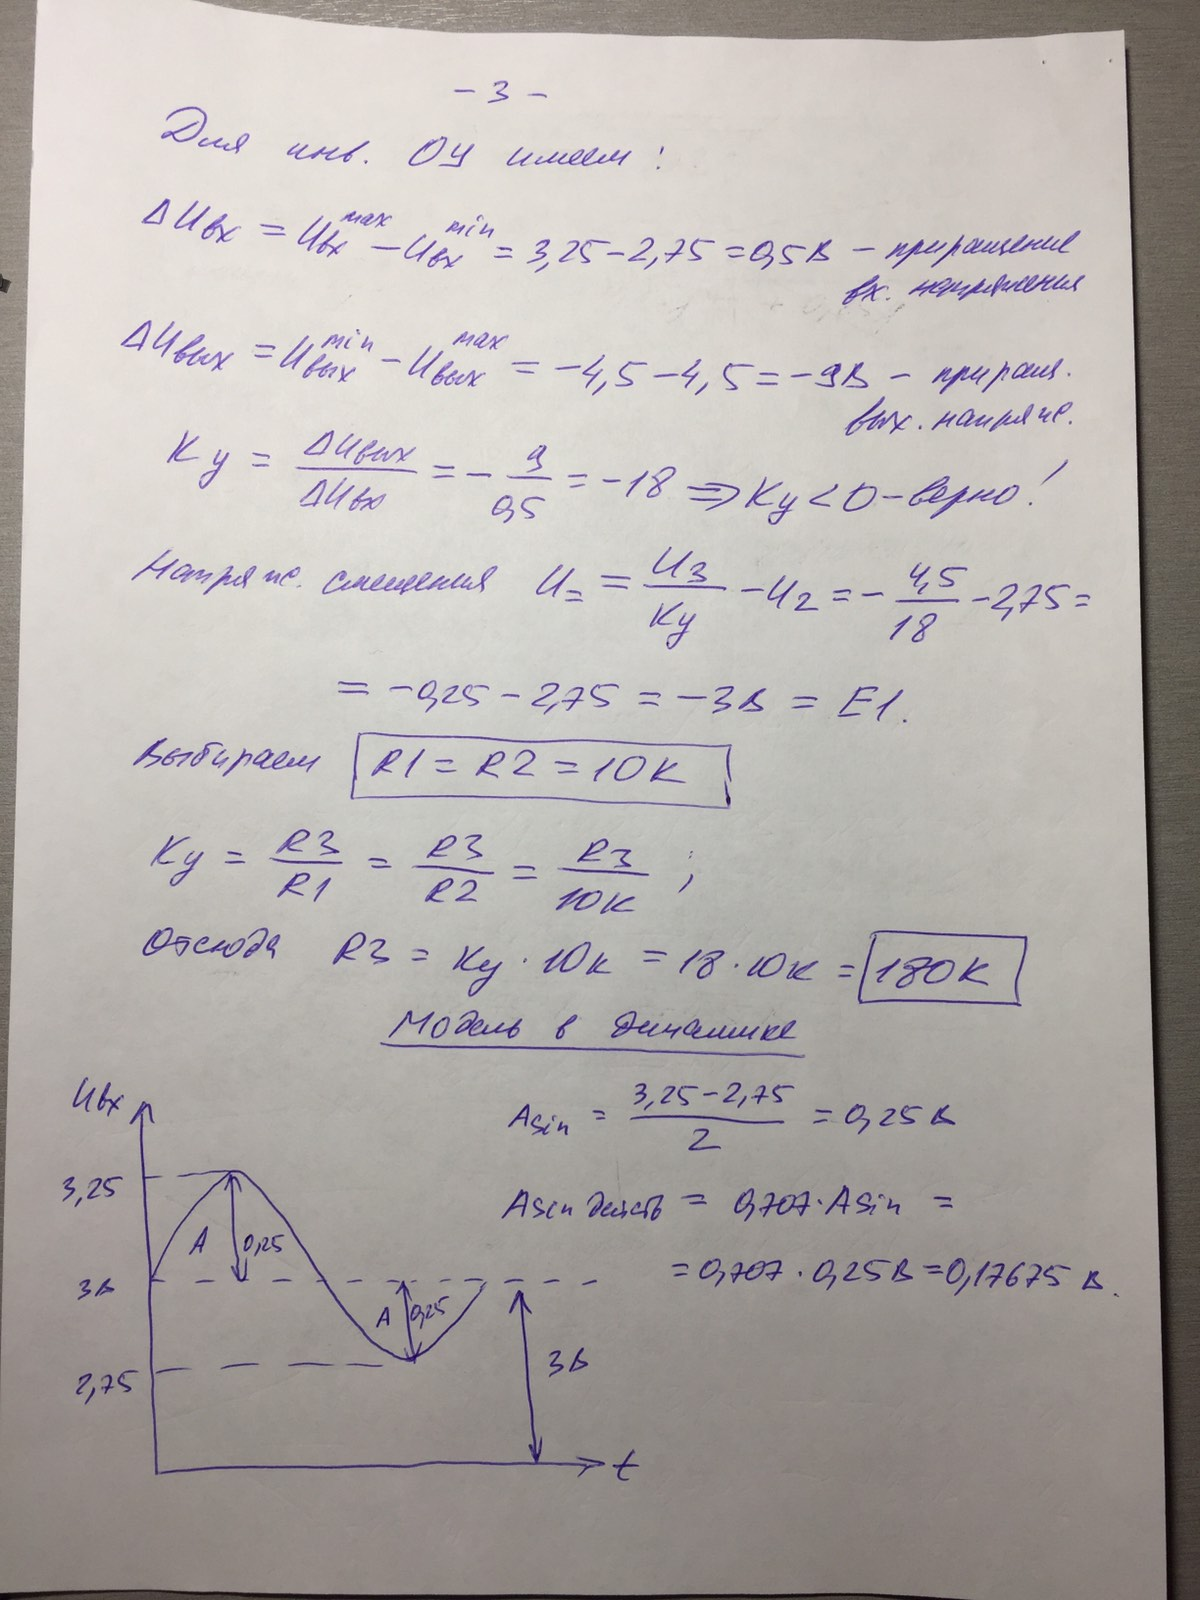 - 3 -
Для инв. ОУ имеем:
ΔUвх = Uвх^max - Uвх^min = 3,25 - 2,75 = 0,5В - приращение
вх. напряжения
ΔUвых = Uвых^min - Uвых^max = -4,5 - 4,5 = -9В - приращ.
вых. напряж.
Ку = ΔUвых/ΔUвх = - 9/0,5 = -18 => Ку < 0 - верно!
Напряж. смещения U= = U3/Ку - U2 = - 4,5/18 - 2,75 =
= -0,25 - 2,75 = -3В = E1.
Выбираем R1 = R2 = 10К
Ку = R3/R1 = R3/R2 = R3/10К ;
Отсюда R3 = Ку · 10к = 18 · 10к = 180К
Модель в динамике
Uвх
Asin = (3,25 - 2,75)/2 = 0,25 В
3,25
Asin действ = 0,707 · Asin =
A 0,25
= 0,707 · 0,25В = 0,17675 В.
3В
A 0,25
3В
2,75
t